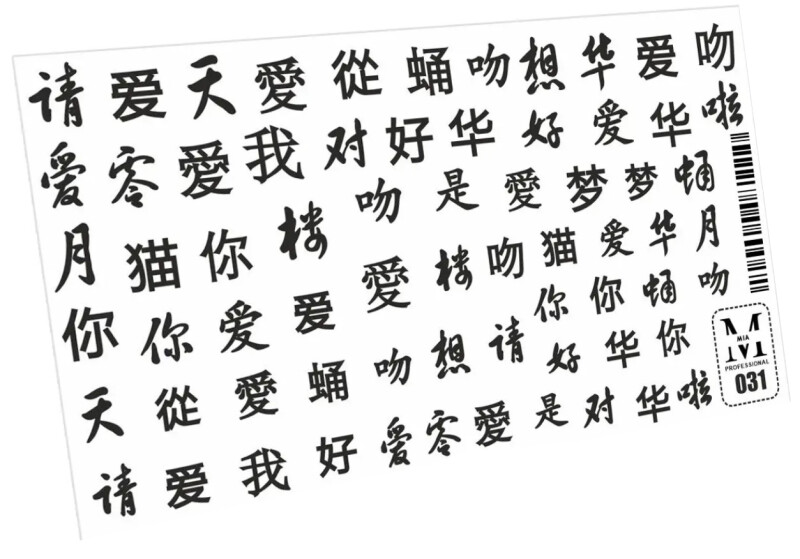 请 爱 天 愛 從 蛹 吻 想 华 爱 吻
爱 零 愛 我 对 好 华 好 爱 华 啦
月 猫 你 楼 吻 是 愛 梦 梦 蛹
你 你 爱 爱 愛 楼 吻 猫 爱 华 月
天 從 愛 蛹 吻 想 请 你 你 蛹 吻
好 华 你
请 爱 我 好 爱 零 愛 是 对 华 啦
M
MIA
PROFESSIONAL
031